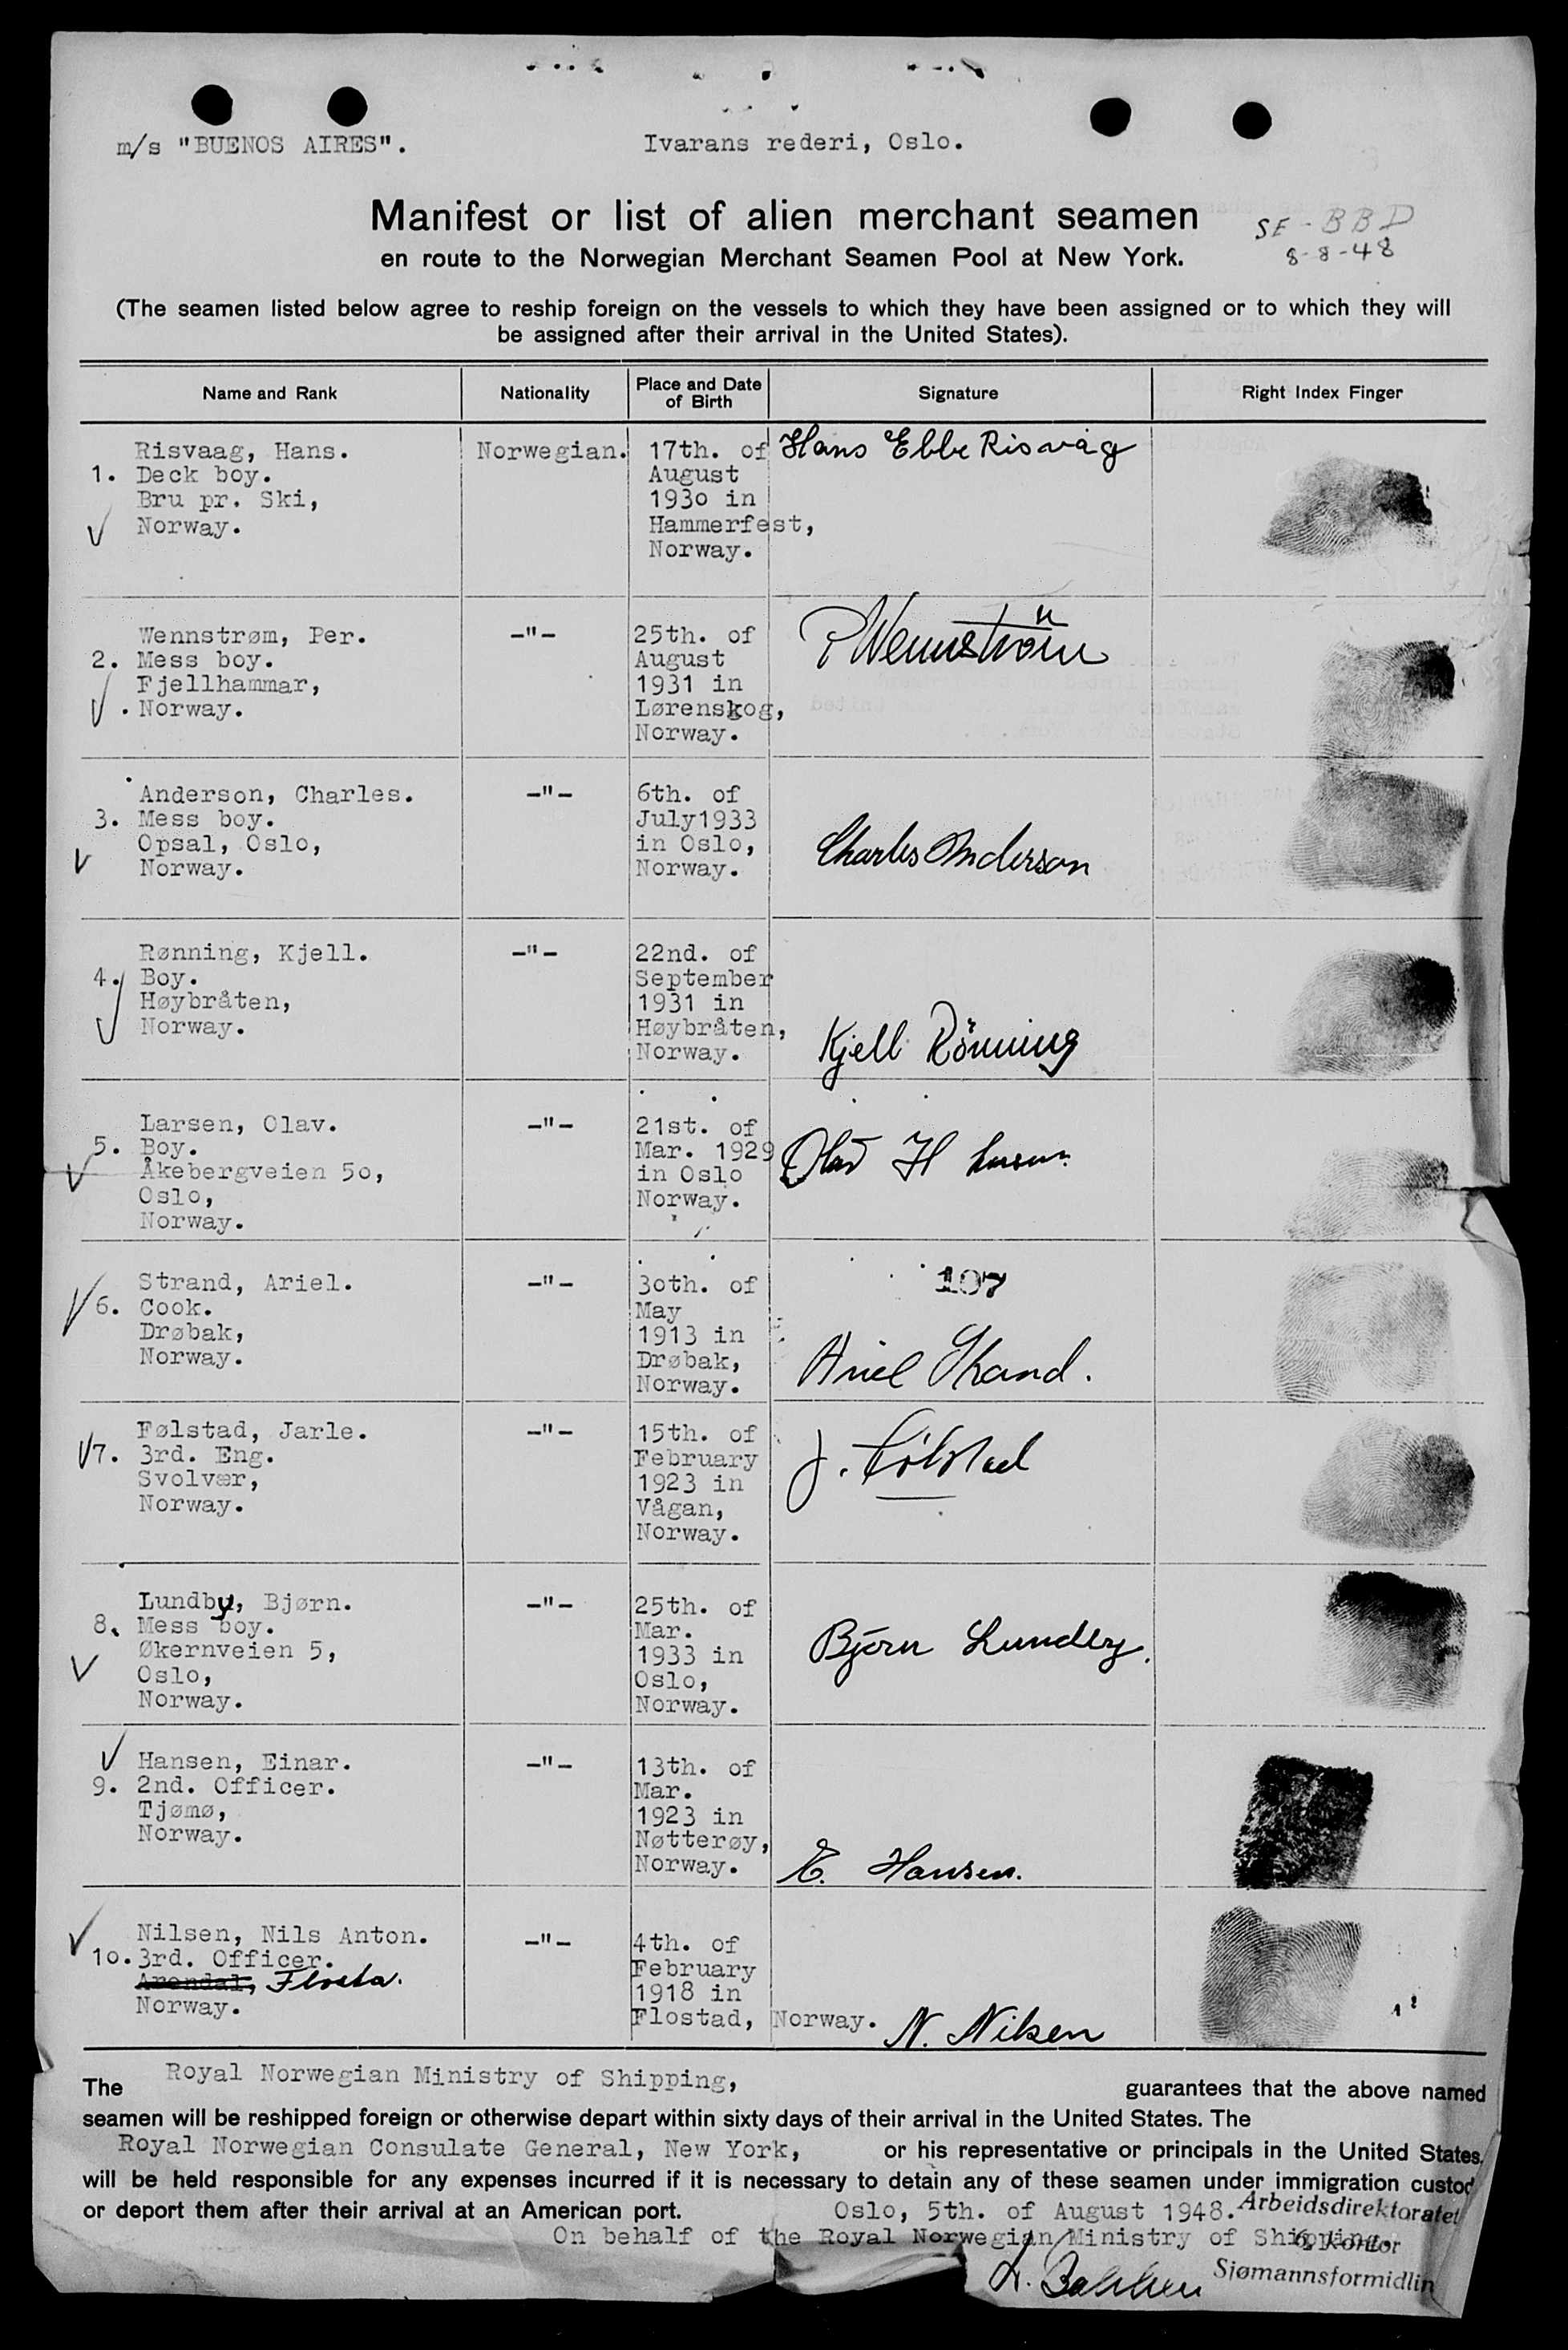 m/s "BUENOS AIRES". Ivarans rederi, Oslo.
Manifest or list of alien merchant seamen
SE-BBD
en route to the Norwegian Merchant Seamen Pool at New York.
8-8-48
(The seamen listed below agree to reship foreign on the vessels to which they have been assigned or to which they will
be assigned after their arrival in the United States).
Name and Rank Nationality Place and Date of Birth Signature Right Index Finger
Risvaag, Hans. Norwegian. 17th. of Hans Ebbe Risvåg
1. Deck boy. August
Bru pr. Ski, 1930 in
Norway. Hammerfest,
Norway.
Wennstrøm, Per. -"- 25th. of P Wennström
2. Mess boy. August
Fjellhammar, 1931 in
Norway. Lørenskog,
Norway.
Anderson, Charles. -"- 6th. of
3. Mess boy. July1933
Opsal, Oslo, in Oslo, Charles Anderson
Norway. Norway.
Rønning, Kjell. -"- 22nd. of
4. Boy. September
Høybråten, 1931 in
Norway. Høybråten,
Norway. Kjell Rönning
Larsen, Olav. -"- 21st. of
5. Boy. Mar. 1929 Olav H Larsen
Åkebergveien 5o, in Oslo
Oslo, Norway.
Norway.
Strand, Ariel. -"- 3oth. of 107
6. Cook. May
Drøbak, 1913 in
Norway. Drøbak, Ariel Strand.
Norway.
Følstad, Jarle. -"- 15th. of
7. 3rd. Eng. February J. Følstad
Svolvær, 1923 in
Norway. Vågan,
Norway.
Lundby, Bjørn. -"- 25th. of
8. Mess boy. Mar.
Økernveien 5, 1933 in Bjørn Lundby.
Oslo, Oslo,
Norway. Norway.
Hansen, Einar. -"- 13th. of
9. 2nd. Officer. Mar.
Tjømø, 1923 in
Norway. Nøtterøy,
Norway. E. Hansen.
Nilsen, Nils Anton. -"- 4th. of
1o. 3rd. Officer. February
Arendal, Flosta. 1918 in
Norway. Flostad, Norway. N. Nilsen
The Royal Norwegian Ministry of Shipping, guarantees that the above named
seamen will be reshipped foreign or otherwise depart within sixty days of their arrival in the United States. The
Royal Norwegian Consulate General, New York, or his representative or principals in the United States.
will be held responsible for any expenses incurred if it is necessary to detain any of these seamen under immigration custod
or deport them after their arrival at an American port. Oslo, 5th. of August 1948. Arbeidsdirektoratet
On behalf of the Royal Norwegian Ministry of Shipping. 6. kontor
Sjømannsformidlin